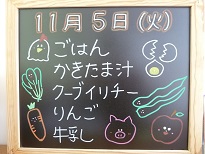 11月5日(火)
ごはん
かきたま汁
クーブイリチー
りんご
牛乳